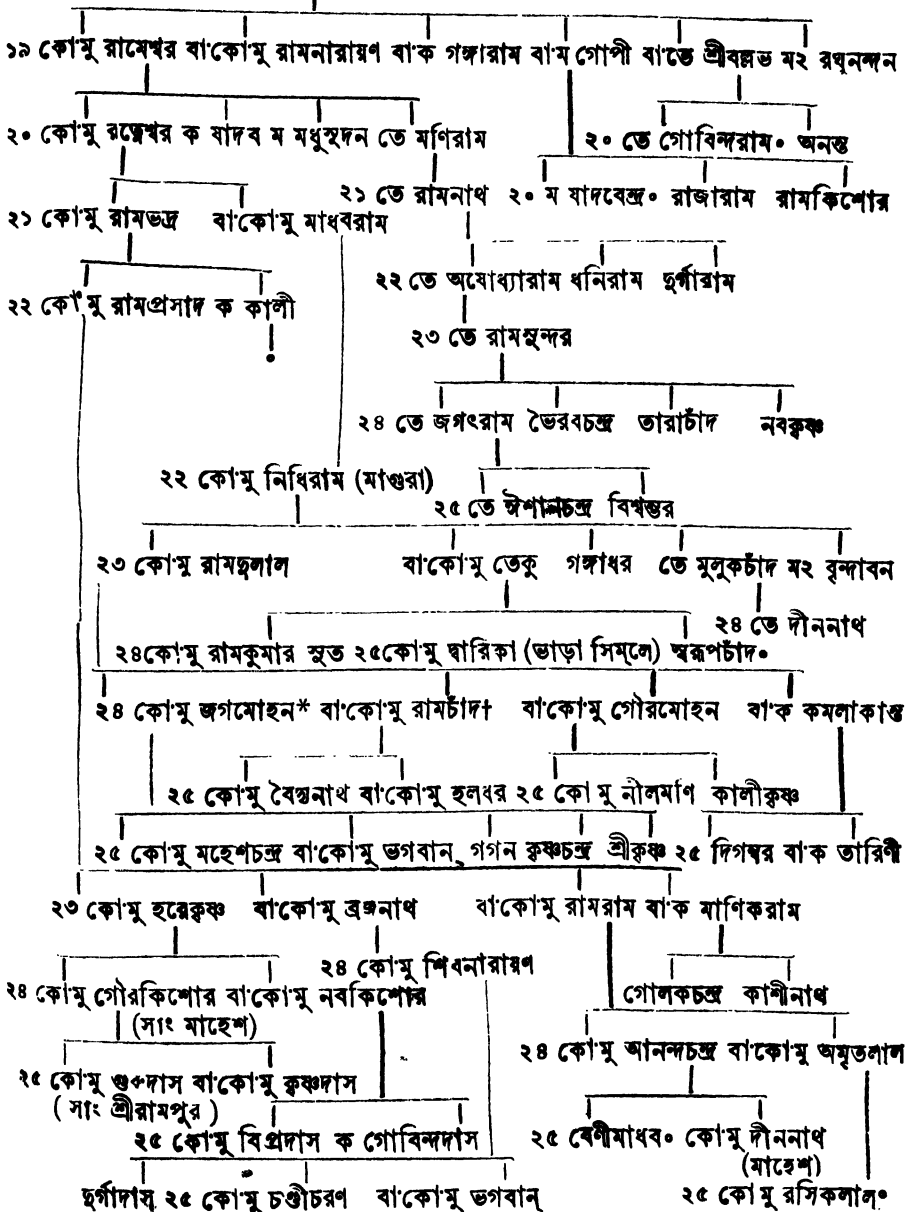 ১৯ কো'মু রামেশ্বর বা'কো'মু রামনারায়ণ বা'ক গঙ্গারাম বা'ম গোপী বা'তে শ্রীবল্লভ ম২ রঘুনন্দন
২০ কো'মু রত্নেশ্বর ক যাদব ম মধুসূদন তে মণিরাম
২০ তে গোবিন্দরাম॰ অনন্ত
২১ তে রামনাথ ২০ ম যাদবেন্দ্র॰ রাজারাম রামকিশোর
২১ কো'মু রামভদ্র বা'কো'মু মাধবরাম
২২ তে অযোধ্যারাম ধনিরাম দুর্গারাম
২২ কো'মু রামপ্রসাদ ক কালী
২৩ তে রামসুন্দর
২৪ তে জগৎরাম ভৈরবচন্দ্র তারাচাঁদ নবকৃষ্ণ
২২ কো'মু নিধিরাম (মাগুরা)
২৫ তে ঈশানচন্দ্র বিশ্বম্ভর
২৩ কো'মু রামদুলাল বা'কো'মু তেকু গঙ্গাধর তে মুলুকচাঁদ ম২ বৃন্দাবন
২৪ তে দীননাথ
২৪কো'মু রামকুমার সুত ২৫কো'মু দ্বারিকা (ভাড়া সিম্‌লে) স্বরূপচাঁদ॰
২৪ কো'মু জগমোহন* বা'কো'মু রামচাঁদ† বা'কো'মু গৌরমোহন বা'ক কমলাকান্ত
২৫ কো'মু বৈদ্যনাথ বা'কো'মু হলধর ২৫ কো মু নীলমণি কালীকৃষ্ণ
২৫ কো'মু মহেশচন্দ্র বা'কো'মু ভগবান্ গগন কৃষ্ণচন্দ্র শ্রীকৃষ্ণ ২৫ দিগম্বর বা'ক তারিণী
২৩ কো'মু হরেকৃষ্ণ বা'কো'মু ব্রজনাথ বা'কো'মু রামরাম বা'ক মাণিকরাম
২৪ কো'মু শিবনারায়ণ
২৪ কো'মু গৌরকিশোর বা'কো'মু নবকিশোর গোলকচন্দ্র কাশীনাথ
(সাং মাহেশ)
২৪ কো'মু আনন্দচন্দ্র বা'কো'মু অমৃতলাল
২৫ কো'মু গুরুদাস বা'কো'মু কৃষ্ণদাস
(সাং শ্রীরামপুর)
২৫ কো'মু বিপ্রদাস ক গোবিন্দদাস ২৫ বেণীমাধব॰ কো'মু দীননাথ
(মাহেশ)
দুর্গাদাস ২৫ কো'মু চণ্ডীচরণ বা'কো'মু ভগবান্ ২৫ কো'মু রসিকলাল॰